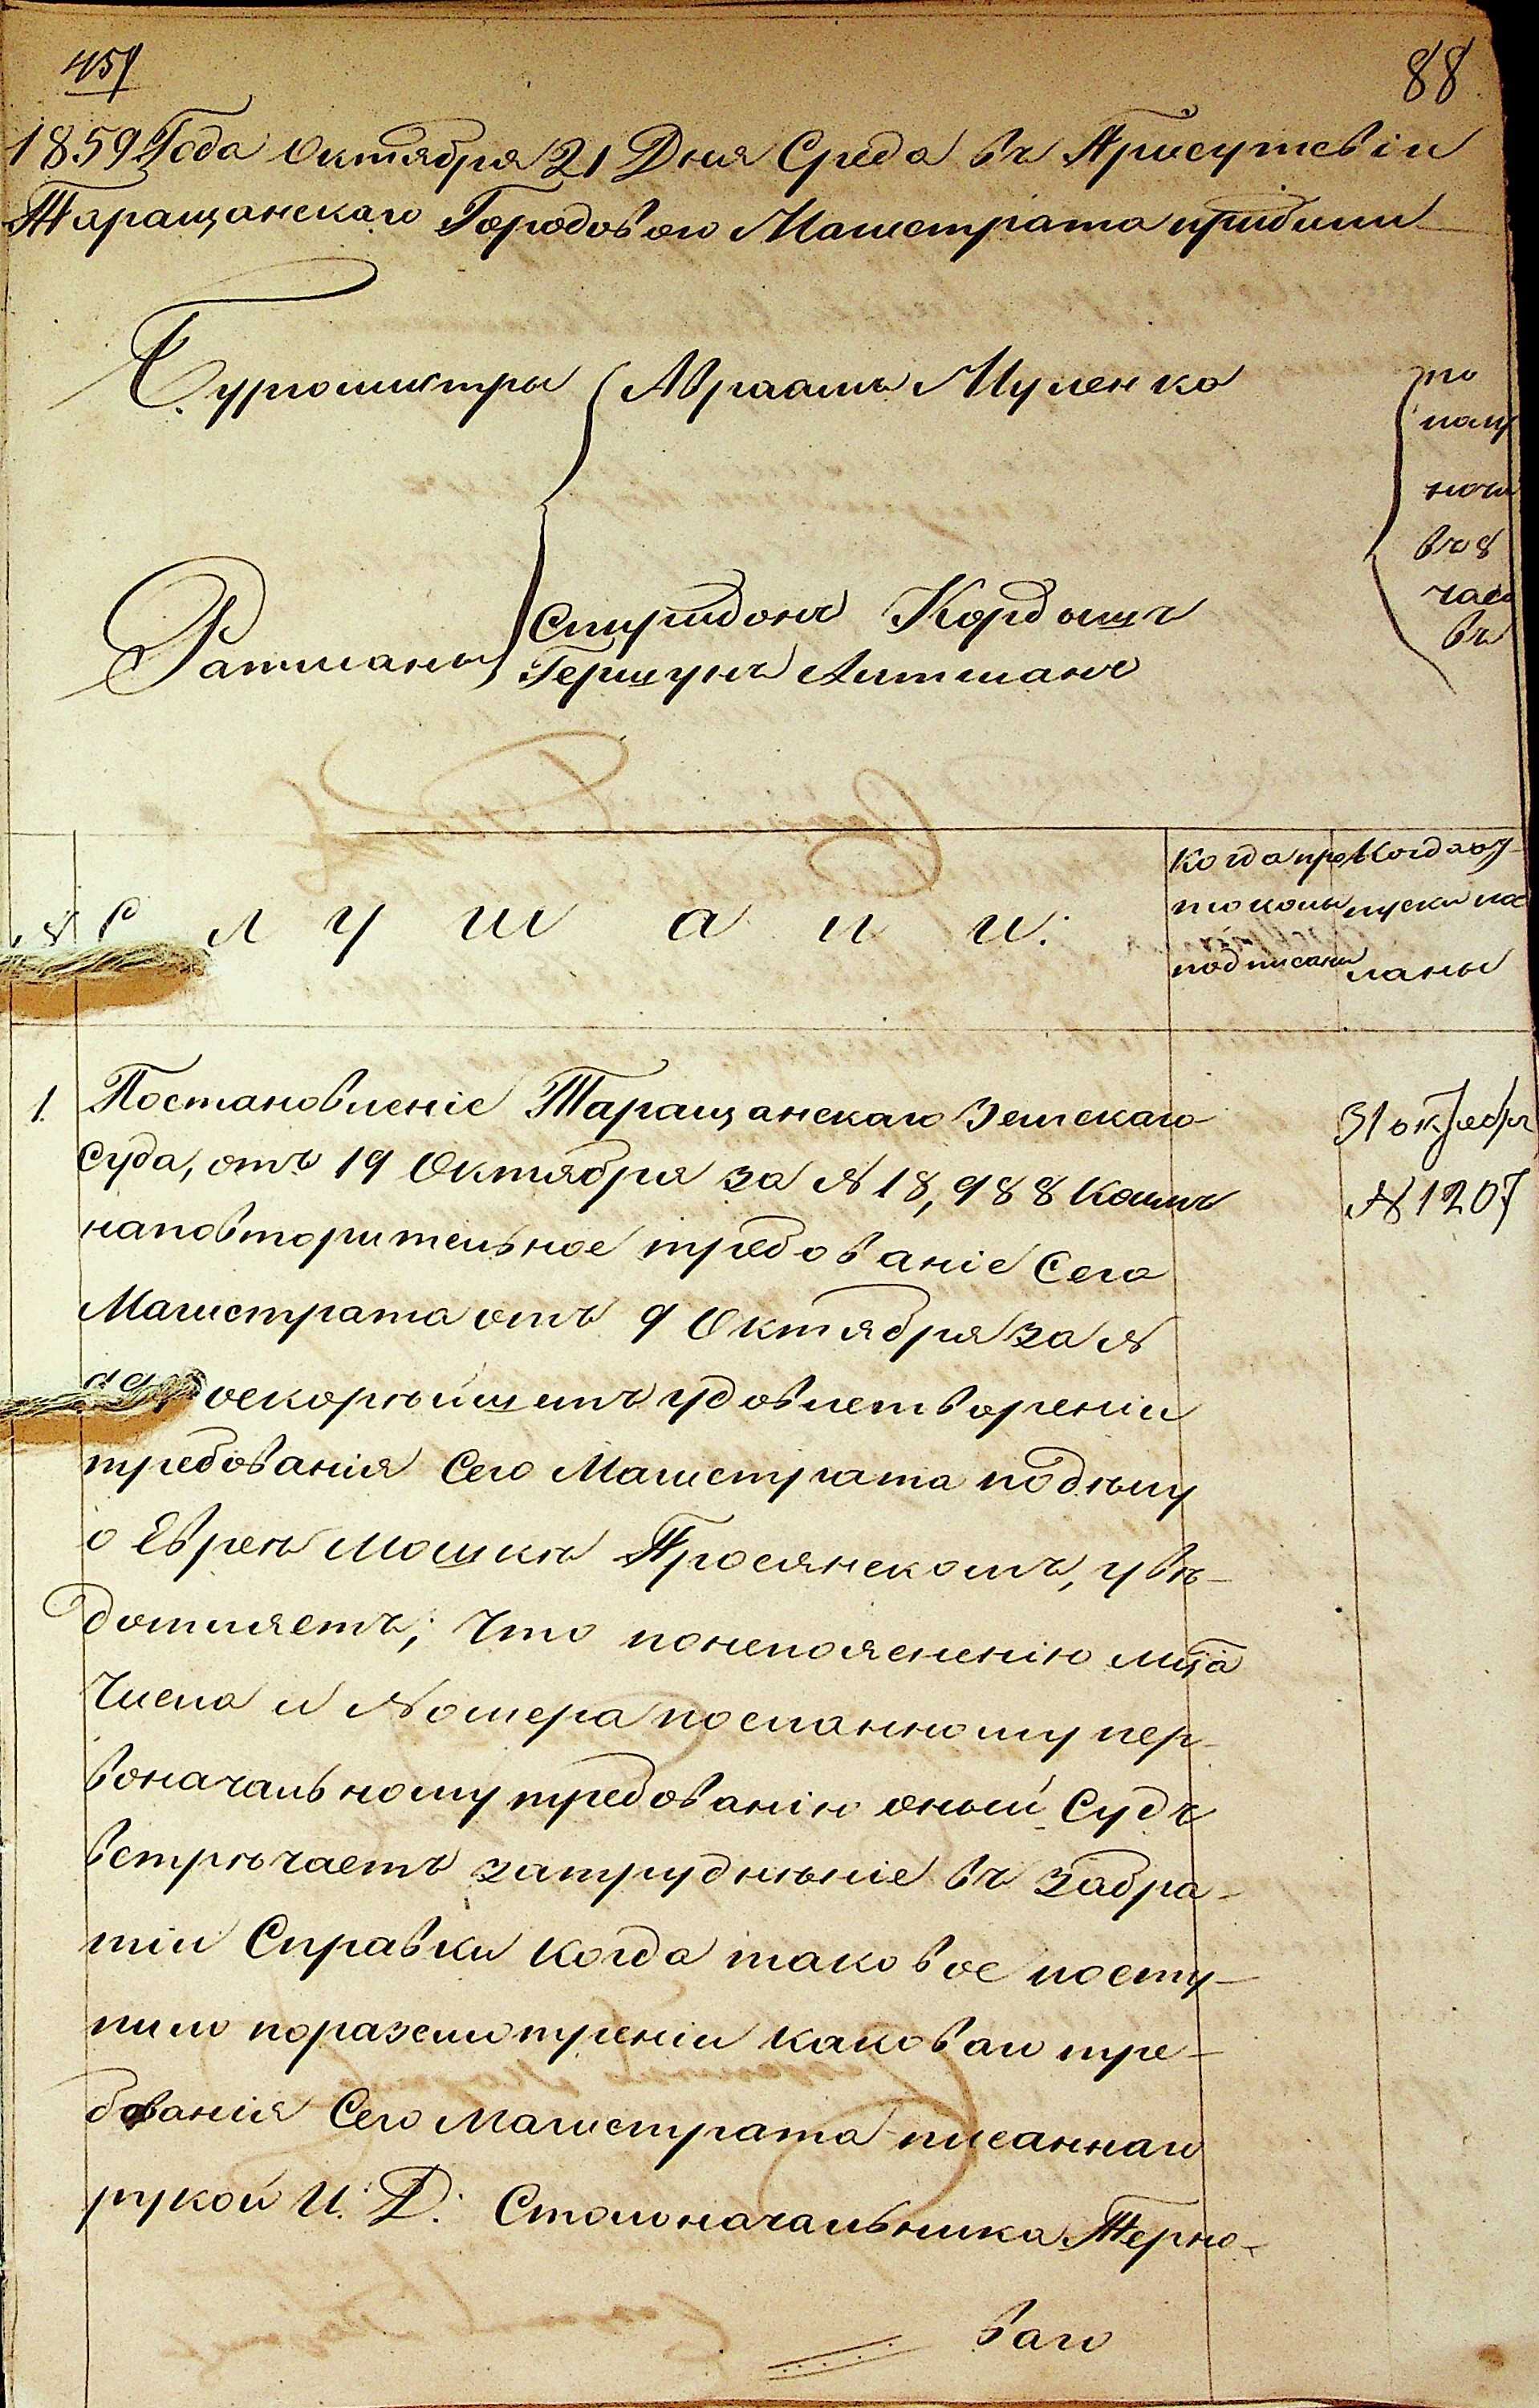 451
88
1859 Года Октября 21 Дня Среда въ Присутсвіи
Таращанскаго Городоваго Магистрата прибыли
Бургомистры Авраамъ Муленко
по
полу
ночи
въ 8
часо
въ
Спиридонъ Кордышъ
Ратманы Гершунъ Литманъ
№ С л у ш а л и:
Когда про
токолы
подписаны
Когда от
пуски пос
ланы
1. Постановленіе Таращанскаго Земскаго
Суда, отъ 19 Октября за № 18,988 Коимъ
наповторительное требованіе Сего
Магистрата отъ 9 Октября за №
оскорѣйшемъ удовлетвореніи
требованія Сего Магистрата подѣлу
о Евреѣ Мошкѣ Просянскомъ, увѣ-
домляетъ, Что понепоясненію мца
Числа и Номера посланному пер-
воначальному требованію оный Судъ
встрѣчаетъ затрудненіе въ Забра-
тіи Справки Когда таковое посту-
пило поразсмотреніи каковаго тре-
бованія Сего Магистрата писаннаго
рукой И. Д. Столоначальника Терно-
ваго
31 октября
№ 1207